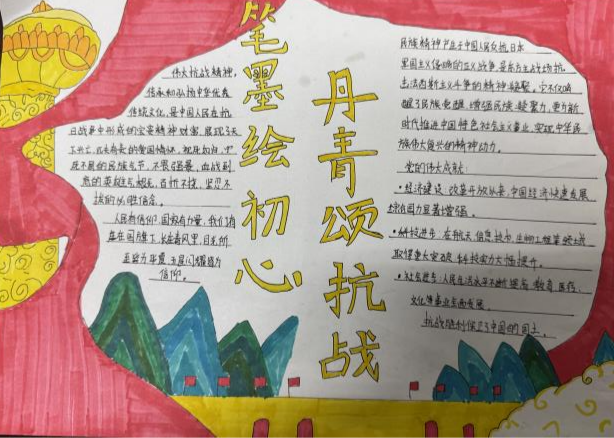 笔墨绘初心
丹青颂抗战
伟大抗战精神，
传承和弘扬中华优秀
传统文化，是中国人民在抗
日战争中形成的宝贵精神财富，展现了天
下兴亡、匹夫有责的爱国情怀，视死如归、宁
死不屈的民族气节，不畏强暴、血战到
底的英雄气概，百折不挠、坚忍不
拔的必胜信念。
人民有信仰，国家有力量，我们
在国旗下，
信仰。
民族精神产生于中国人民反抗日本
军国主义侵略的正义战争，是东方主战场抗
击法西斯主义斗争的精神凝聚，它不仅唤
醒了民族觉醒，增强民族凝聚力，更为新
时代推进中国特色社会主义事业，实现中华民
族伟大复兴的精神动力。
党的伟大成就：
·经济建设：改革开放以来，中国经济快速发展
综合国力显著增强。
·科技进步：在航天、信息技术、生物工程等领域
取得重大突破，科技实力大幅提升。
·社会进步：人民生活水平不断提高，教育、医疗、
文化等事业全面发展。
抗战胜利保卫了中国的国土。